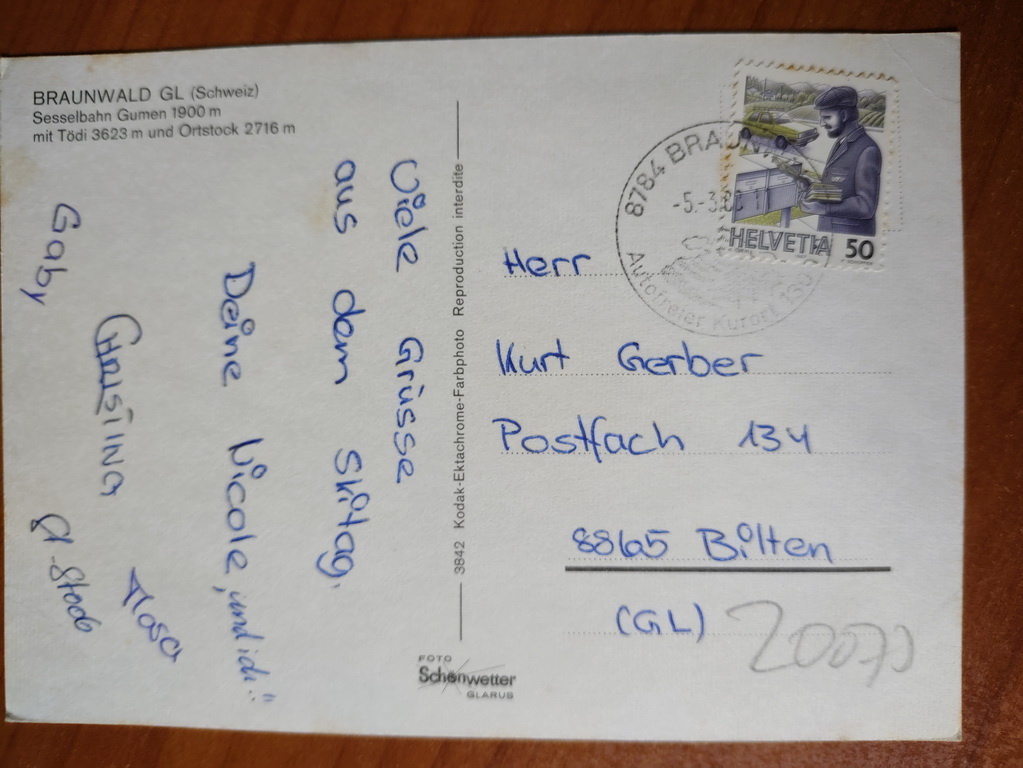 BRAUNWALD GL (Schweiz)
Sesselbahn Gumen 1900 m
mit Tödi 3623 m und Ortstock 2716 m
Viele Grüsse
aus dem Skitag,
Deine Nicole, und idi
Christina
Gaby
3842 Kodak-Ektachrome-Farbphoto Reproduction interdite
FOTO
Schönwetter
GLARUS
8784 BRAUN
-5.-3.8
Autofreier Kurort 130
HELVETIA 50
Herr
Kurt Gerber
Postfach 134
8865 Bilten
(GL)
20070